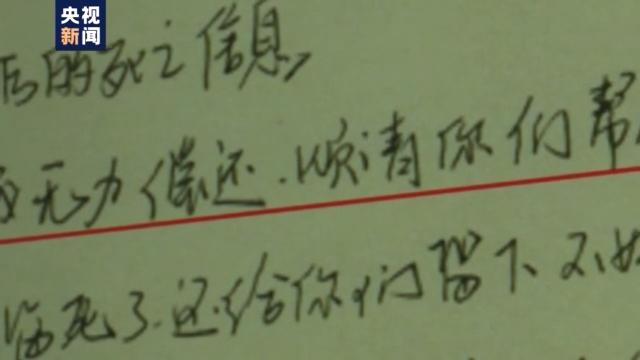 央视
新闻
后的死亡信息
无力偿还.烦请你们帮
死了.还给你们留下不好